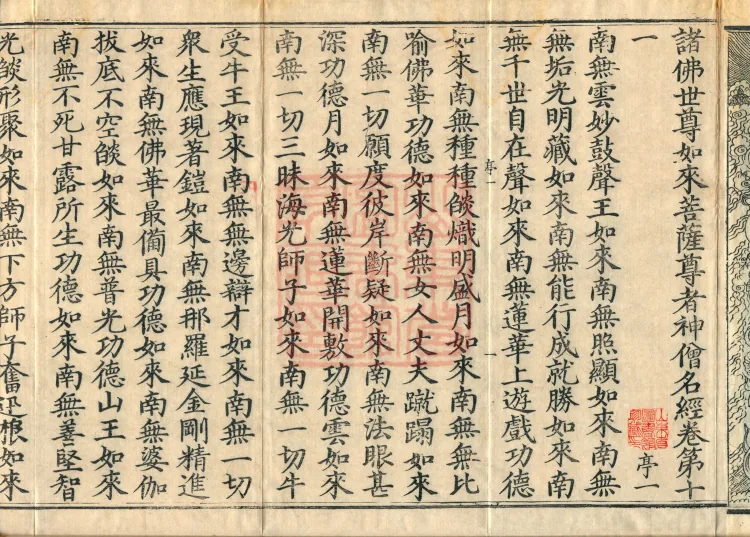 諸佛世尊如來菩薩尊者神僧名經卷第十
一
亭一
南無雲妙鼓聲王如來南無照顯如來南無
無垢光明藏如來南無能行成就勝如來南
無千世自在聲如來南無蓮華上遊戲功德
如來南無種種燄熾明盛月如來南無無比
喻佛華功德如來南無女人丈夫蹴蹋如來
南無一切願度彼岸斷疑如來南無法眼甚
深功德月如來南無蓮華開敷功德雲如來
南無一切三昧海光師子如來南無一切牛
受牛王如來南無無邊辯才如來南無一切
衆生應現著鎧如來南無那羅延金剛精進
如來南無佛華最僃具功德如來南無婆伽
拔底不空燄如來南無普光功德山王如來
南無不死甘露所生功德如來南無善堅智
光燄形聚如來南無下方師子奮迅根如來